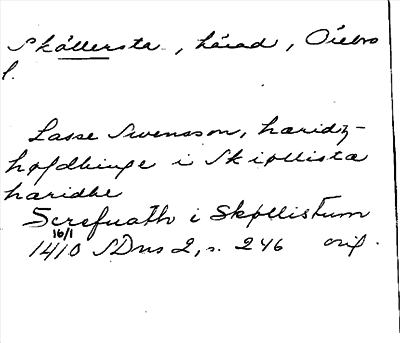 Skållersta, härad, Örebro
l.
Lasse Swensson, haridz-
høfdhinge i Skiøllista
haridhe
Screfuath i Skøllistum
16/1
1410 SDns 2, s. 246 orig.